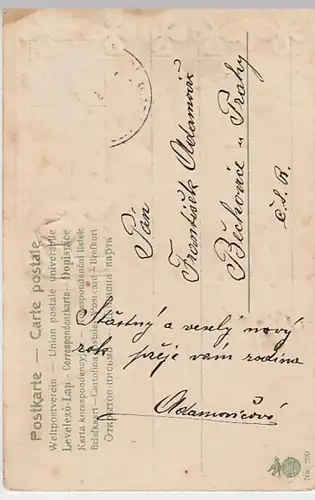 Postkarte — Carte postale
Weltpostverein — Union postale universelle
Levelező-Lap — Correspondenzkarte — Dopisnice
Karta korespondencyjna — Korespondenční lístek
Briefkort — Cartolina postale — Postcard — Brefkort
Открытое письмо
Pán
František Adamovič
Běchovice u Prahy
Č.S.R.
Štastný a veselý nový
rok přeje vám rodina
Adamovičová
No. 209